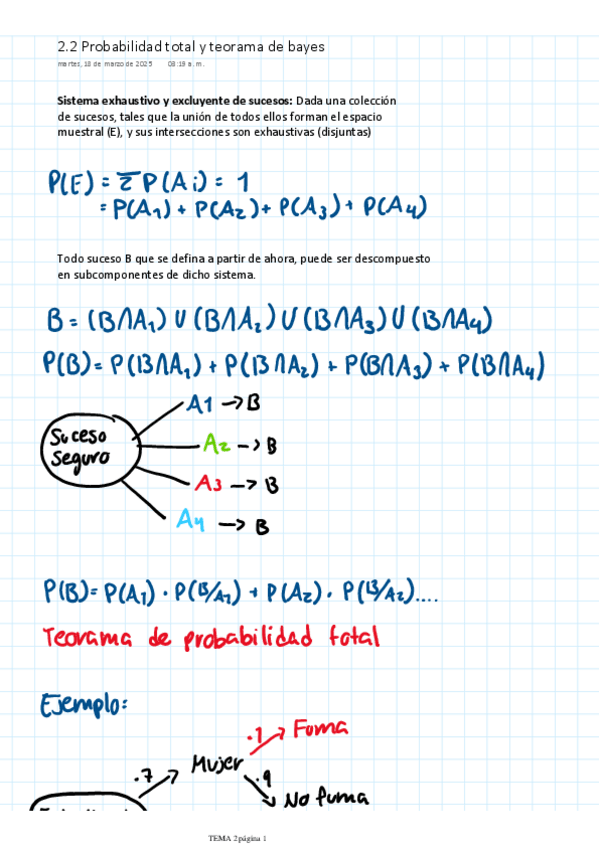 2.2 Probabilidad total y teorema de bayes
martes, 18 de marzo de 2025 08:19 a. m.
Sistema exhaustivo y excluyente de sucesos: Dada una colección
de sucesos, tales que la unión de todos ellos forman el espacio
muestral (E), y sus intersecciones son exhaustivas (disjuntas)
P(E) = Σ P(Ai) = 1
= P(A1) + P(A2) + P(A3) + P(A4)
Todo suceso B que se defina a partir de ahora, puede ser descompuesto
en subcomponentes de dicho sistema.
B = (B∩A1) U (B∩A2) U (B∩A3) U (B∩A4)
P(B) = P(B∩A1) + P(B∩A2) + P(B∩A3) + P(B∩A4)
Suceso
Seguro
A1 → B
A2 → B
A3 → B
A4 → B
P(B) = P(A1) · P(B/A1) + P(A2) · P(B/A2)....
Teorama de probabilidad total
Ejemplo:
.1 → Foma
.7 → Mujer
.9
No fuma
TEMA 2 página 1